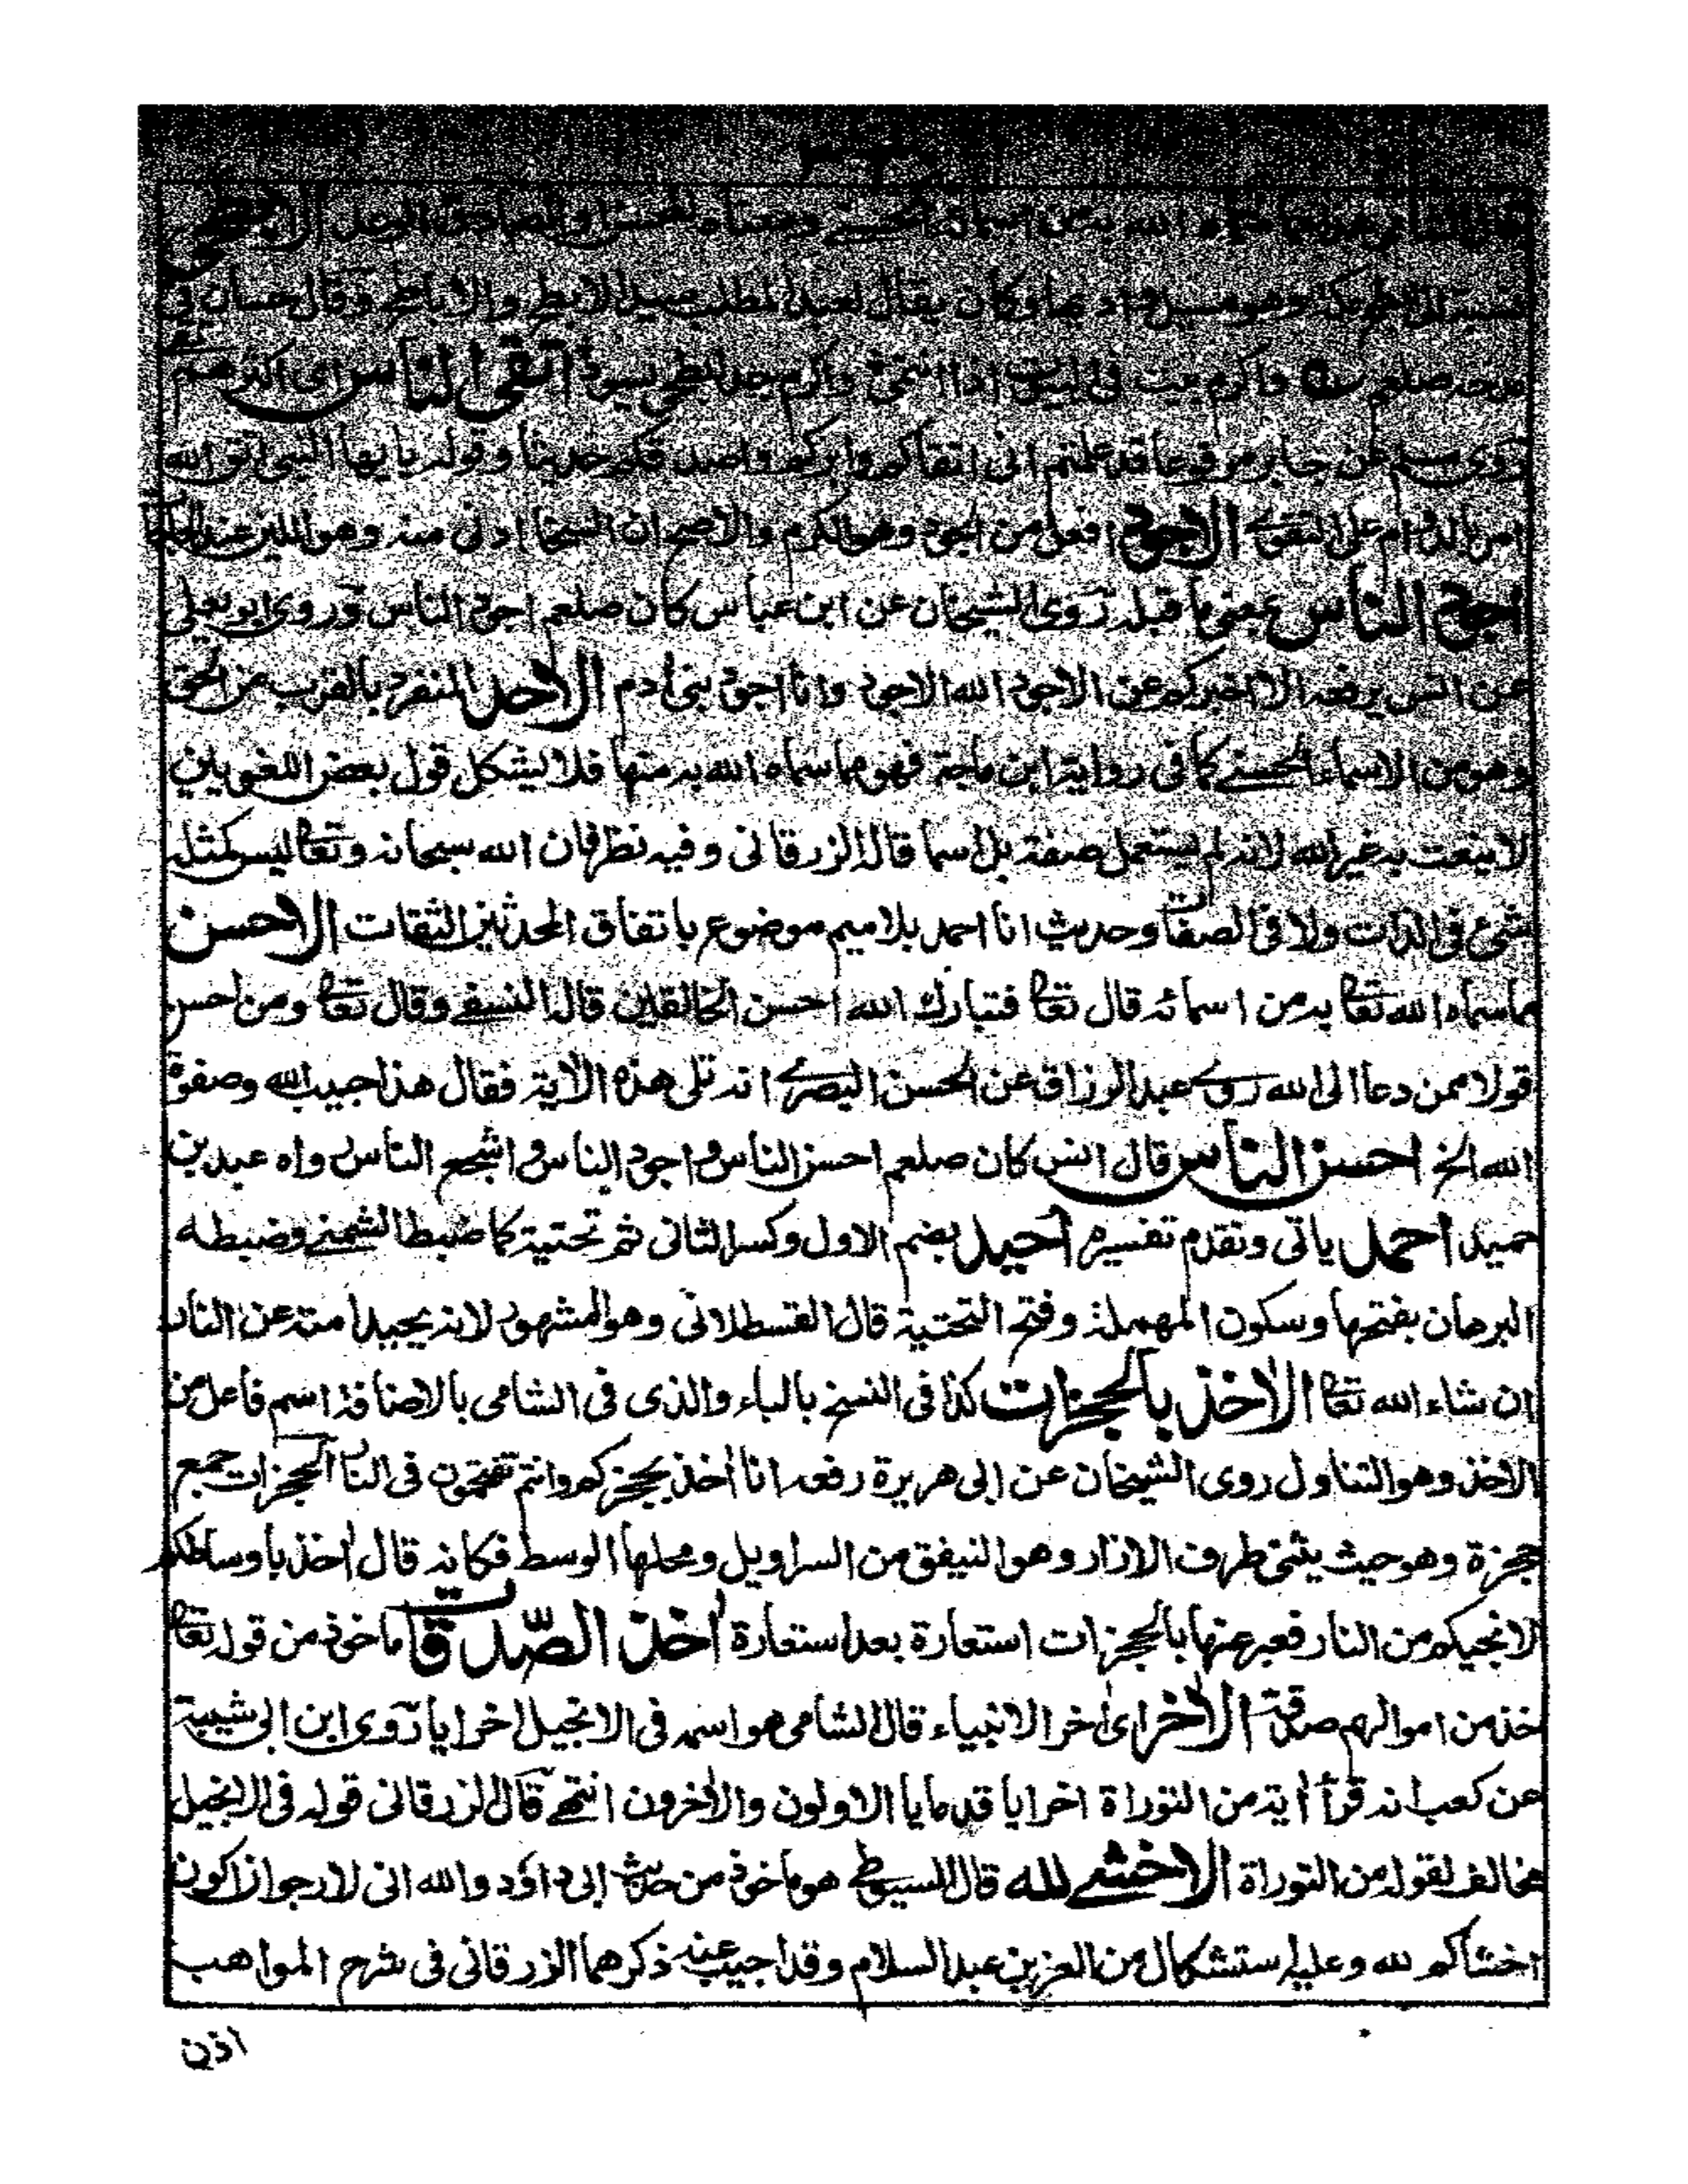 الله به من اسمائه الحسنى الابطحى
نسبة الى ابطح مكة وهو مسيل واديها وكان يقال لعبد المطلب سيد الابطح والاباطح وقال حسان فى
صلعم واكرم بيت فى البيوت اذا انتمى واكرم جد ابطحى يسود اتقى الناس اى اكثرهم
روى مسلم عن جابر مرفوعا قد علمتم انى اتقاكم وابركم واصدقكم حديثا وقوله يا يها النبى اتق الله
امر بالدوام على التقوى الاجود افعل من الجود وهو الكرم والاصح ان السخا ادنى منه وهو اللين عند
اجود الناس بمعنى ما قبله روى الشيخان عن ابن عباس كان صلعم اجود الناس وروى ابو يعلى
عن انس يرفعه الا اخبركم عن الاجود الله الاجود وانا اجود بنى ادم الاحد المنفرد بالقرب من الحق
وهو من الاسماء الحسنى كما فى رواية ابن ماجة فهو مما سماه الله به منها فلا يشكل قول بعض اللغويين
لا ينعت به غير الله لانه لم يستعمل صفة بل اسما قاله الزرقانى وفيه نظر فان الله سبحانه وتعالى ليس كمثله
شئ فى الذات ولا فى الصفات وحديث انا احمد بلا ميم موضوع باتفاق المحدثين الثقات الاحسن
مما سماه الله تعالى به من اسمائه قال تعالى فتبارك الله احسن الخالقين قاله النسفى وقال تعالى ومن احسن
قولا ممن دعا الى الله روى عبد الرزاق عن الحسن البصرى انه تلى هذه الاية فقال هذا حبيب الله وصفوة
الله الخ احسن الناس قال انس كان صلعم احسن الناس واجود الناس واشجع الناس رواه عبد بن
حميد احمد ياتى وتقدم تفسيره احيد بضم الاول وكسر الثانى ثم تحتية كما ضبط الشمنى وضبطه
البرهان بفتحها وسكون المهملة وفتح التحتية قال القسطلانى وهو المشهور لانه يحيد امته عن النار
ان شاء الله تعالى الاخذ بالحجزات كذا فى النسخ بالباء والذى فى الشامى بالاضافة اسم فاعل من
الاخذ وهو التناول روى الشيخان عن ابى هريرة رفعه انا اخذ بحجزكم وانتم تقتحمون فى النار الحجزات جمع
حجزة وهو حيث يثنى طرف الازار وهو النيفق من السراويل ومحلها الوسط فكانه قال اخذ باوساطكم
لانجيكم من النار فعبر عنها بالحجزات استعارة بعد استعارة اخذ الصّدقات ماخوذ من قوله تعالى
خذ من اموالهم صدقة الاخر اى اخر الانبياء قال الشامى هو اسمه فى الانجيل اخرايا روى ابن ابى شيبة
عن كعب انه قرأ اية من التوراة اخرايا قدمايا الاولون والاخرون انتهى قال الزرقانى قوله فى الانجيل
مخالف لقوله من التوراة الاخشى لله قال السيوطى هو ماخوذ من حديث ابى داؤد والله انى لارجو ان اكون
اخشاكم لله وعليه استشكال من العز بن عبد السلام وقد اجيب عنه ذكرهما الزرقانى فى شرح المواهب
اذن